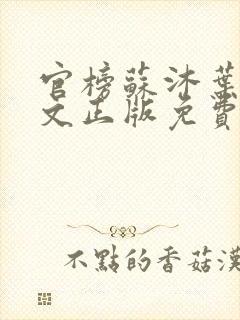 官榜蘇沐葉
文正版免費
不點的香菇漢